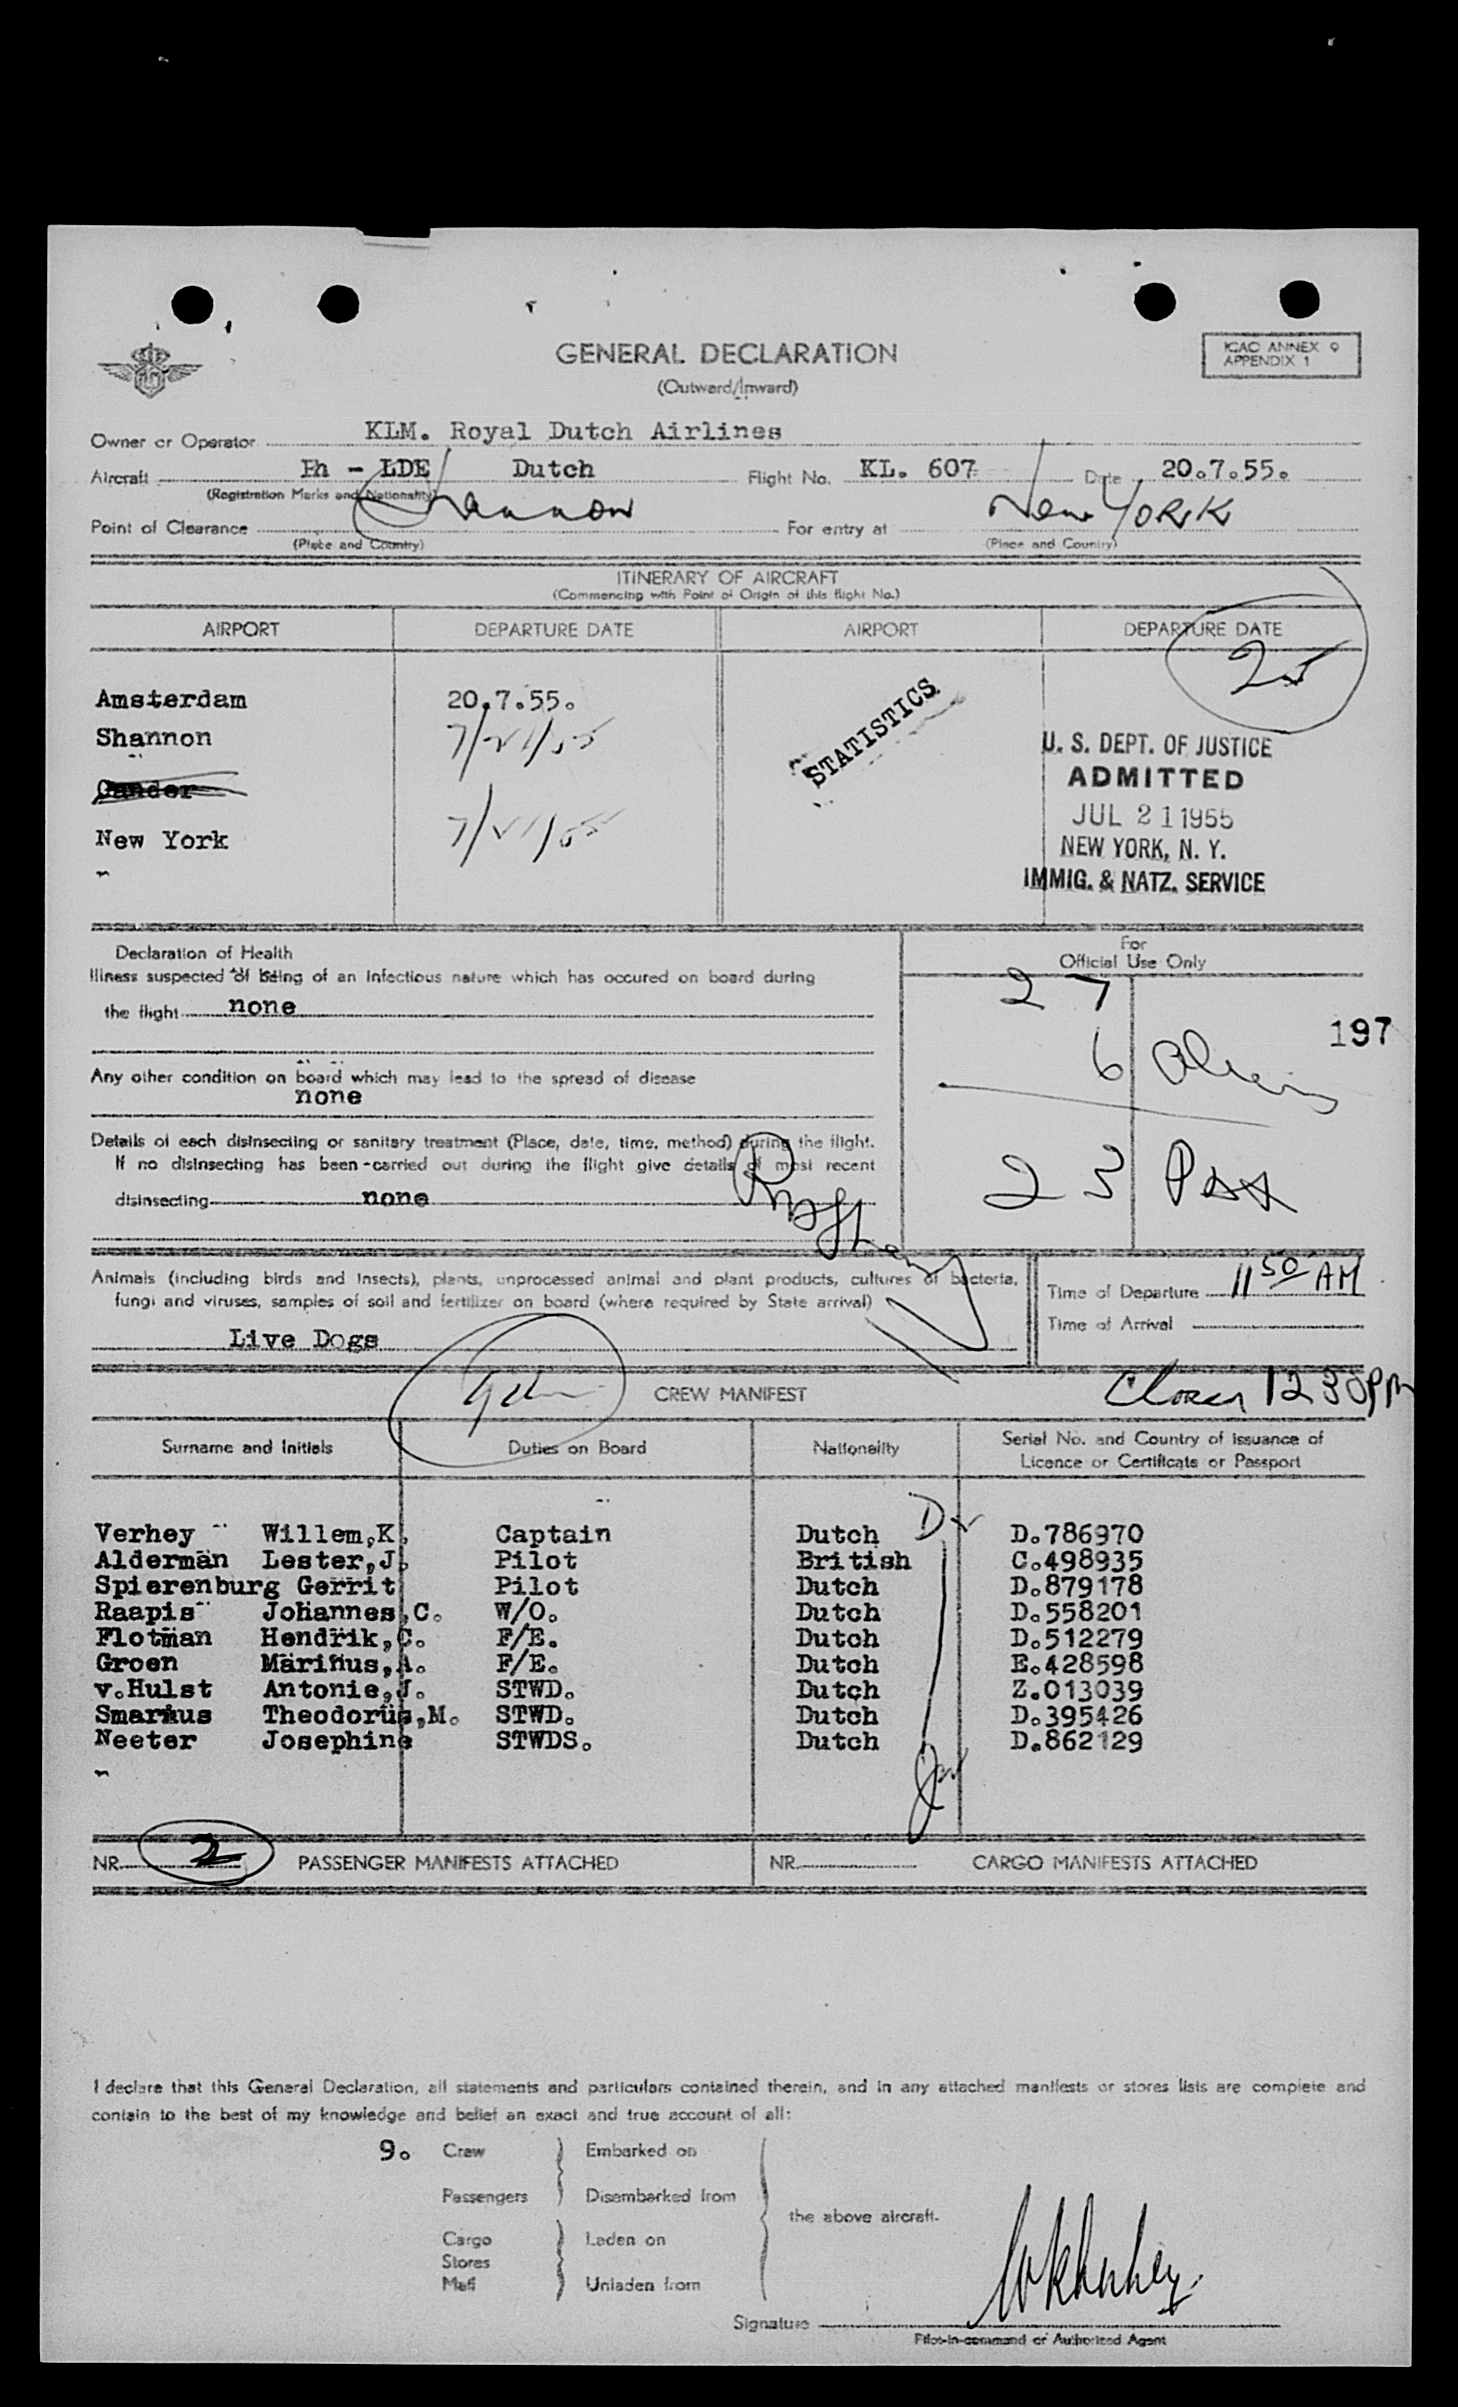 GENERAL DECLARATION
(Outward/Inward)
ICAO ANNEX 9
APPENDIX 1
Owner or Operator KLM. Royal Dutch Airlines
Aircraft Ph - LDE Dutch Flight No. KL. 607 Date 20.7.55.
(Registration Marks and Nationality)
Point of Clearance Shannon For entry at New YORK
(Place and Country) (Place and Country)
ITINERARY OF AIRCRAFT
(Commencing with Point of Origin of this flight No.)
AIRPORT DEPARTURE DATE AIRPORT DEPARTURE DATE
25
Amsterdam 20.7.55.
Shannon 7/21/55
Gander
New York 7/21/55
STATISTICS
U. S. DEPT. OF JUSTICE
ADMITTED
JUL 21 1955
NEW YORK, N. Y.
IMMIG. & NATZ. SERVICE
Declaration of Health
Illness suspected of being of an infectious nature which has occured on board during
the flight none
Any other condition on board which may lead to the spread of disease
none
Details of each disinsecting or sanitary treatment (Place, date, time, method) during the flight.
If no disinsecting has been carried out during the flight give details of most recent
disinsecting none
For
Official Use Only
27
6 Aliens
197
23 Pax
Animals (including birds and insects), plants, unprocessed animal and plant products, cultures of bacteria,
fungi and viruses, samples of soil and fertilizer on board (where required by State arrival)
Live Dogs
Time of Departure 11 50 AM
Time of Arrival
12 30 PM
CREW MANIFEST
Surname and Initials Duties on Board Nationality Serial No. and Country of issuance of
Licence or Certificate or Passport
Verhey Willem,K. Captain Dutch D.786970
Alderman Lester,J. Pilot British C.498935
Spierenburg Gerrit Pilot Dutch D.879178
Raapis Johannes,C. W/O. Dutch D.558201
Flotman Hendrik,C. F/E. Dutch D.512279
Groen Marinus,A. F/E. Dutch E.428598
v.Hulst Antonie,J. STWD. Dutch Z.013039
Smarius Theodorus,M. STWD. Dutch D.395426
Neeter Josephine STWDS. Dutch D.862129
NR. 2 PASSENGER MANIFESTS ATTACHED NR. CARGO MANIFESTS ATTACHED
I declare that this General Declaration, all statements and particulars contained therein, and in any attached manifests or stores lists are complete and
contain to the best of my knowledge and belief an exact and true account of all:
9. Crew Embarked on
Passengers Disembarked from
the above aircraft.
Cargo Laden on
Stores
Mail Unladen from
Signature WKVerhey.
Pilot-in-command or Authorized Agent